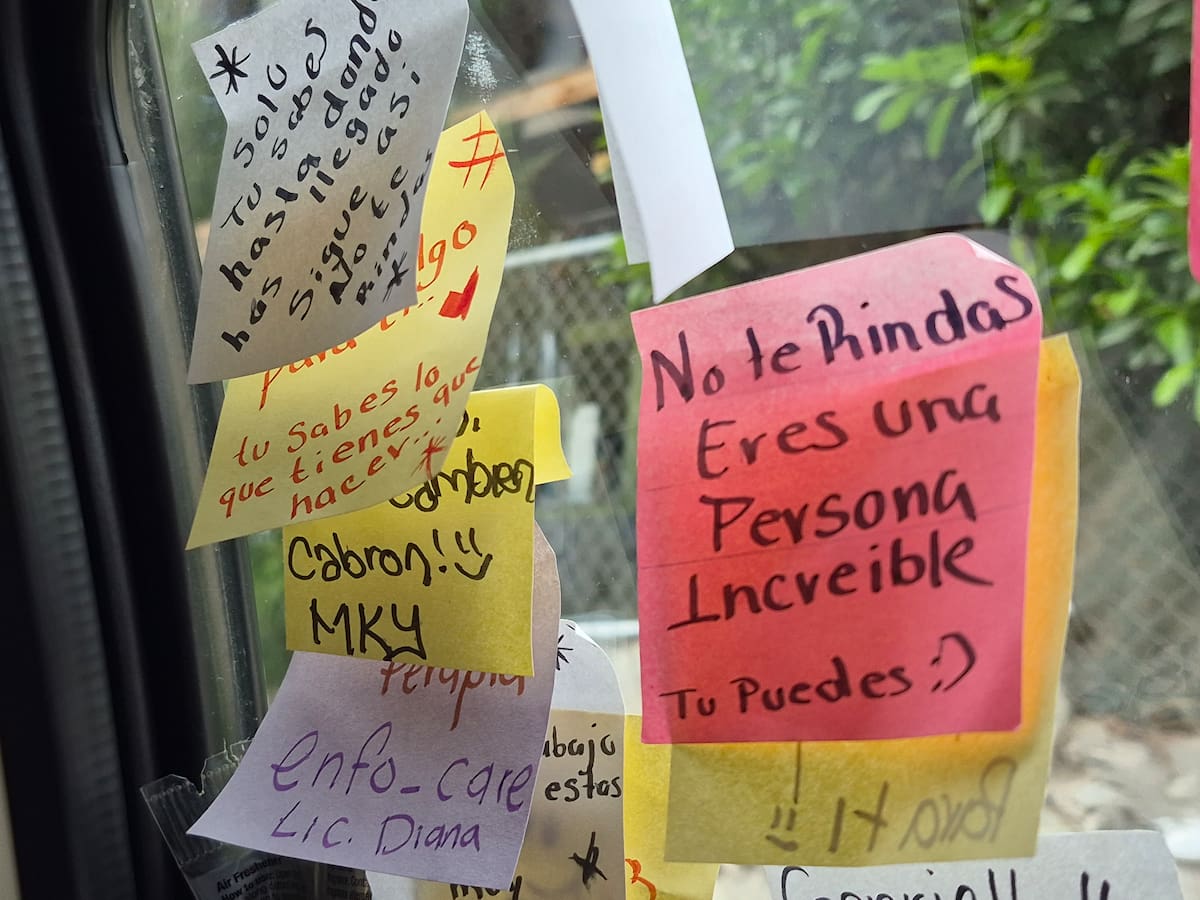 *
Tu solo
sabes
hasta dand
has llegado
sigue así
No te
rindas
*
#
lgo
para ti..
tu sabes lo
que tienes que
hacer...*
Cabron!
MKY
Terapia
enfo-care
Lic. Diana
estas
*
Air Freshener
No te Rindas
Eres una
Persona
Increible
Tu Puedes :)
Para ti